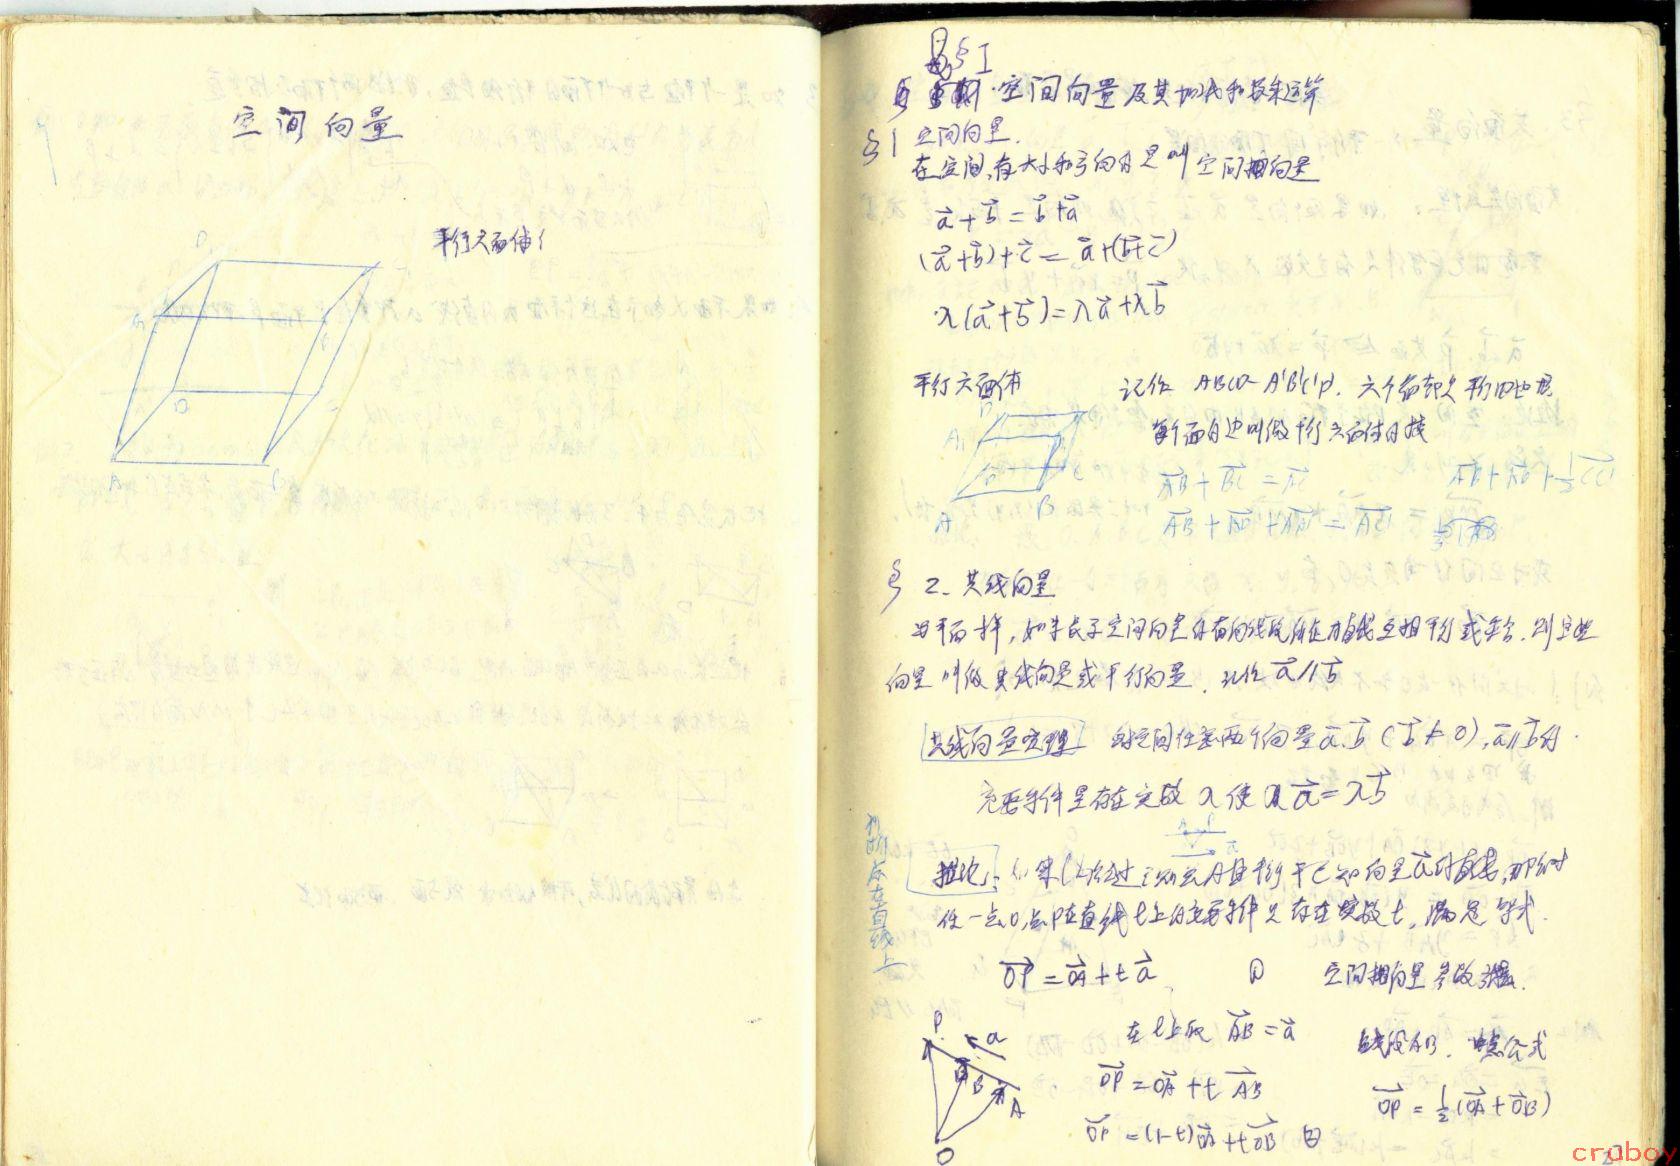 空间向量
平行六面体
D₁
A₁
D
A
B
§1
空间向量及其加减和数乘运算
§1 空间向量.
在空间,有大小和方向的量叫空间向量
a⃗+b⃗=b⃗+a⃗
(a⃗+b⃗)+c⃗=a⃗+(b⃗+c⃗)
λ(a⃗+b⃗)=λa⃗+λb⃗
平行六面体 记作 ABCD-A'B'C'D'. 六个面都是平行四边形
每个面的边叫做平行六面体的棱
A₁
D
C
A
B
AB⃗+BC⃗=AC⃗
AB⃗+AD⃗+½CC'⃗
AB⃗+AD⃗+AA'⃗=AC'⃗
§2、共线向量
与平面一样,如果表示空间向量的有向线段所在的直线互相平行或重合,则这些
向量叫做共线向量或平行向量.记作 a⃗//b⃗
共线向量定理 对空间任意两个向量a⃗,b⃗(b⃗≠0),a⃗//b⃗的
充要条件是存在实数λ使a⃗=λb⃗
推论: 如果l为经过已知点A且平行于已知向量a⃗的直线,那么对
任一点O,点P在直线l上的充要条件是存在实数t,满足等式.
判断点在直线上
OP⃗=OA⃗+ta⃗ ① 空间向量参数
在l上取 AB⃗=a⃗
线段AB. 中点公式
OP⃗=OA⃗+tAB⃗
OP⃗=½(OA⃗+OB⃗)
OP⃗=(1-t)OA⃗+tOB⃗
P
a
B
A
O
cruboy